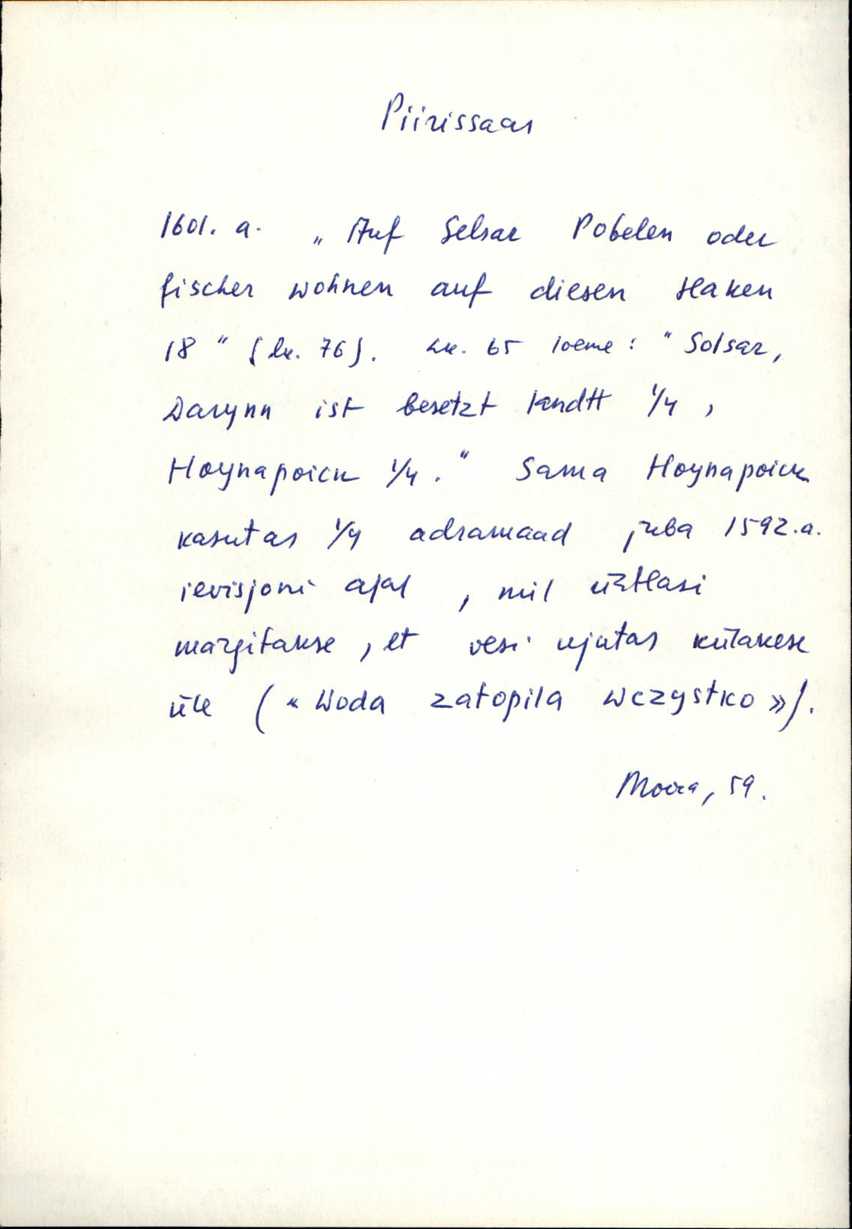 Piirissaar
1601. a. „Auf Selsar Pobelen oder
fischer wohnen auf diesen Haken
18" (lk. 76). Lk. 65 loeme: "Solsar,
Darynn ist besetzt landtt 1/4,
Hoynapoick 1/4." Sama Hoynapoick
kasutas 1/4 adramaad juba 1592.a.
revisjoni ajal, mil ühtlasi
märgitakse, et vesi ujutas külakese
üle (« Woda zatopila wczystko »).
Moora, 59.